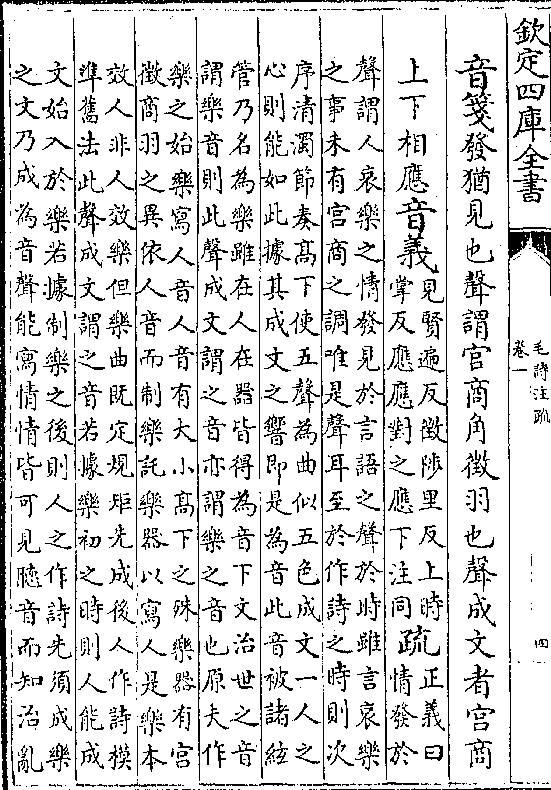 欽定四庫全書
毛詩注疏
卷一
四
音箋發猶見也聲謂宮商角徵羽也聲成文者宮商
上下相應音義
見賢遍反徵陟里反上時
掌反應應對之應下注同
疏
正義曰
情發於
聲謂人哀樂之情發見於言語之聲於時雖言哀樂
之事未有宮商之調唯是聲耳至於作詩之時則次
序清濁節奏高下使五聲為曲似五色成文一人之
心則能如此據其成文之響即是為音此音被諸絃
管乃名為樂雖在人在器皆得為音下文治世之音
謂樂音則此聲成文謂之音亦謂樂之音也原夫作
樂之始樂寫人音人音有大小高下之殊樂器有宮
徵商羽之異依人音而制樂託樂器以寫人是樂本
效人非人效樂但樂曲既定規矩先成後人作詩模
準舊法此聲成文謂之音若據樂初之時則人能成
文始入於樂若據制樂之後則人之作詩先須成樂
之文乃成為音聲能寫情情皆可見聽音而知治亂